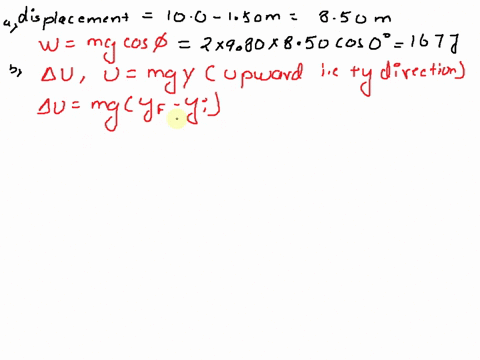 a, displacement = 10.0 - 1.50m = 8.50 m
W = mg cos φ = 2 x 9.80 x 8.50 cos 0° = 167 J
b, ΔU, U = mgy (upward i.e +y direction)
ΔU = mg(yF - yi)